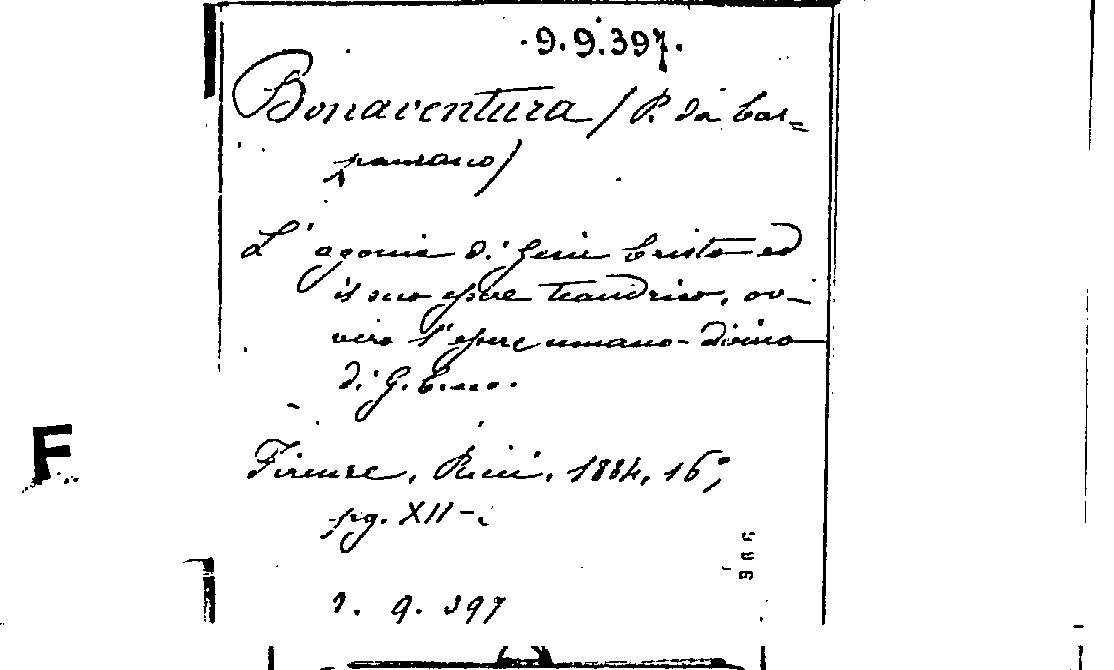 9.9.397.
Bonaventura (P. da Cas=
L'agonia di Gesù Cristo ed
il suo essere teandrico, ov-
vero l'essere umano-divino
di G. Cristo.
Firenze, Ricci, 1884, 16°,
pg. XII-
9. 9. 397
F